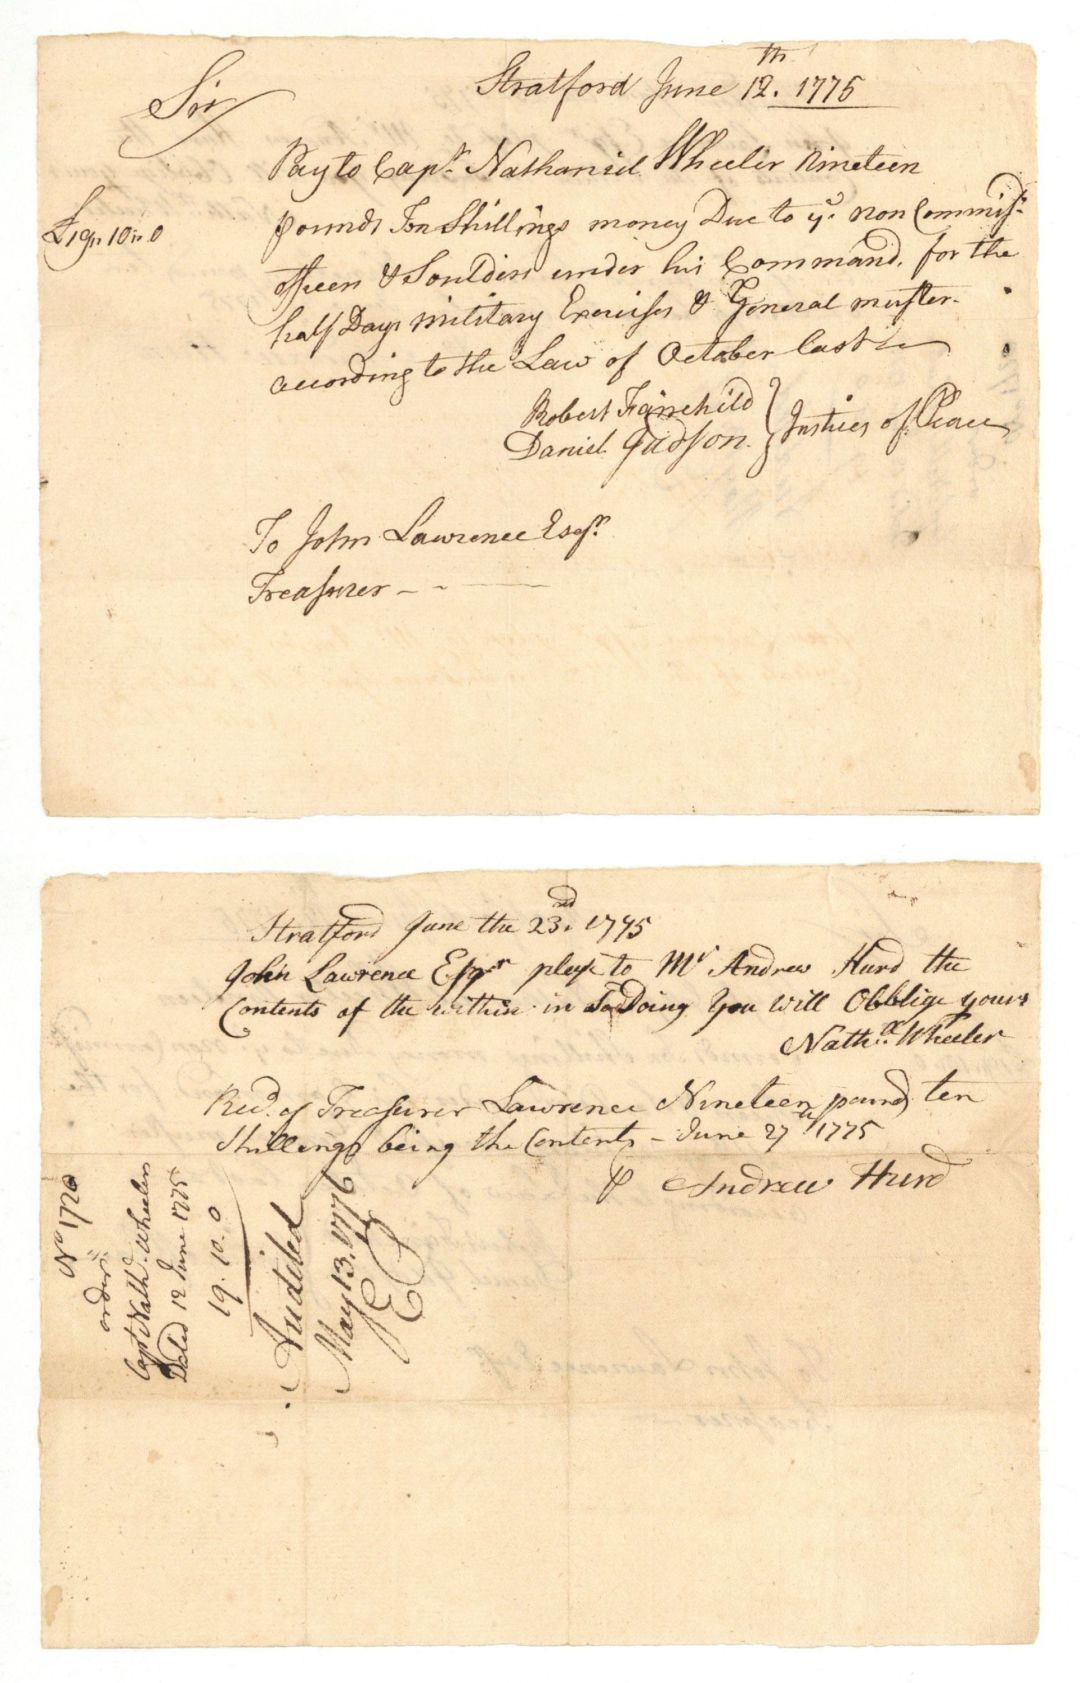 Stratford June 12.th 1775
Sir
Pay to Capt. Nathaniel Wheeler Nineteen
£19,, 10,, 0
pounds Ten Shillings money Due to ye. non Commiss.
officers & Souldiers under his Command. for the
half Days military Exercises & General muster.
according to the Law of October last
Robert Fairchild
Daniel Judson. } Justices of Peace
To John Lawrence Esqr.
Treasurer - - -
Stratford June the 23rd. 1775
John Lawrence Esqr pleas to Mr Andrew Hurd the
Contents of the within in So Doing You will Obblige yours
Nathll. Wheeler
Recd. of Treasurer Lawrence Nineteen pounds ten
Shillings being the Contents - June 27th 1775
⅌ Andrew Hurd
No 1720
order
Capt Nathl. Wheelers
Dated 12 June 1775
19. 10. 0
Audited
May 13. 1776